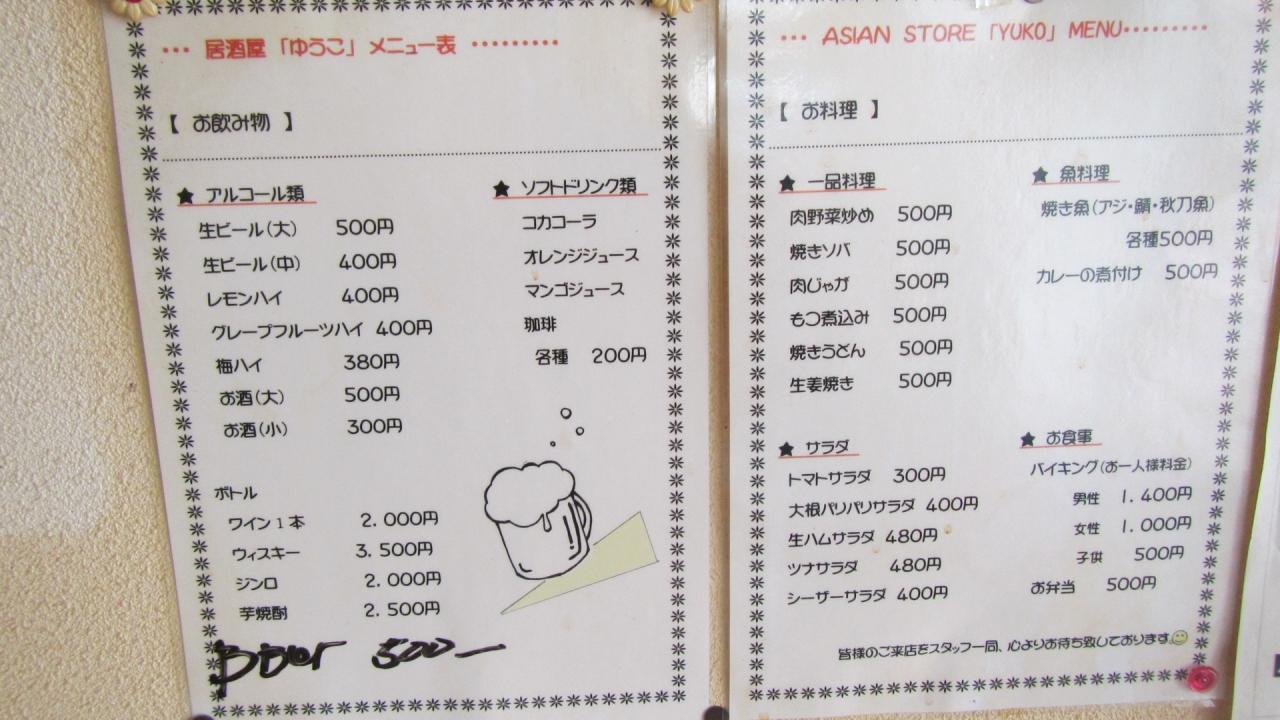 ••• 居酒屋「ゆうこ」メニュー表 •••••••••
【 お飲み物 】
★ アルコール類
生ビール(大) 500円
生ビール(中) 400円
レモンハイ 400円
グレープフルーツハイ 400円
梅ハイ 380円
お酒(大) 500円
お酒(小) 300円
ボトル
ワイン1本 2.000円
ウィスキー 3.500円
ジンロ 2.000円
芋焼酎 2.500円
500—
★ ソフトドリンク類
コカコーラ
オレンジジュース
マンゴジュース
珈琲
各種 200円
••• ASIAN STORE「YUKO」MENU•••••••••
【 お料理 】
★ 一品料理
肉野菜炒め 500円
焼きソバ 500円
肉じゃが 500円
もつ煮込み 500円
焼きうどん 500円
生姜焼き 500円
★ サラダ
トマトサラダ 300円
大根パリパリサラダ 400円
生ハムサラダ 480円
ツナサラダ 480円
シーザーサラダ 400円
★ 魚料理
焼き魚(アジ・鯖・秋刀魚)
各種500円
カレーの煮付け 500円
★ お食事
バイキング(お一人様料金)
男性 1.400円
女性 1.000円
子供 500円
お弁当 500円
皆様のご来店をスタッフ一同、心よりお待ち致しております。